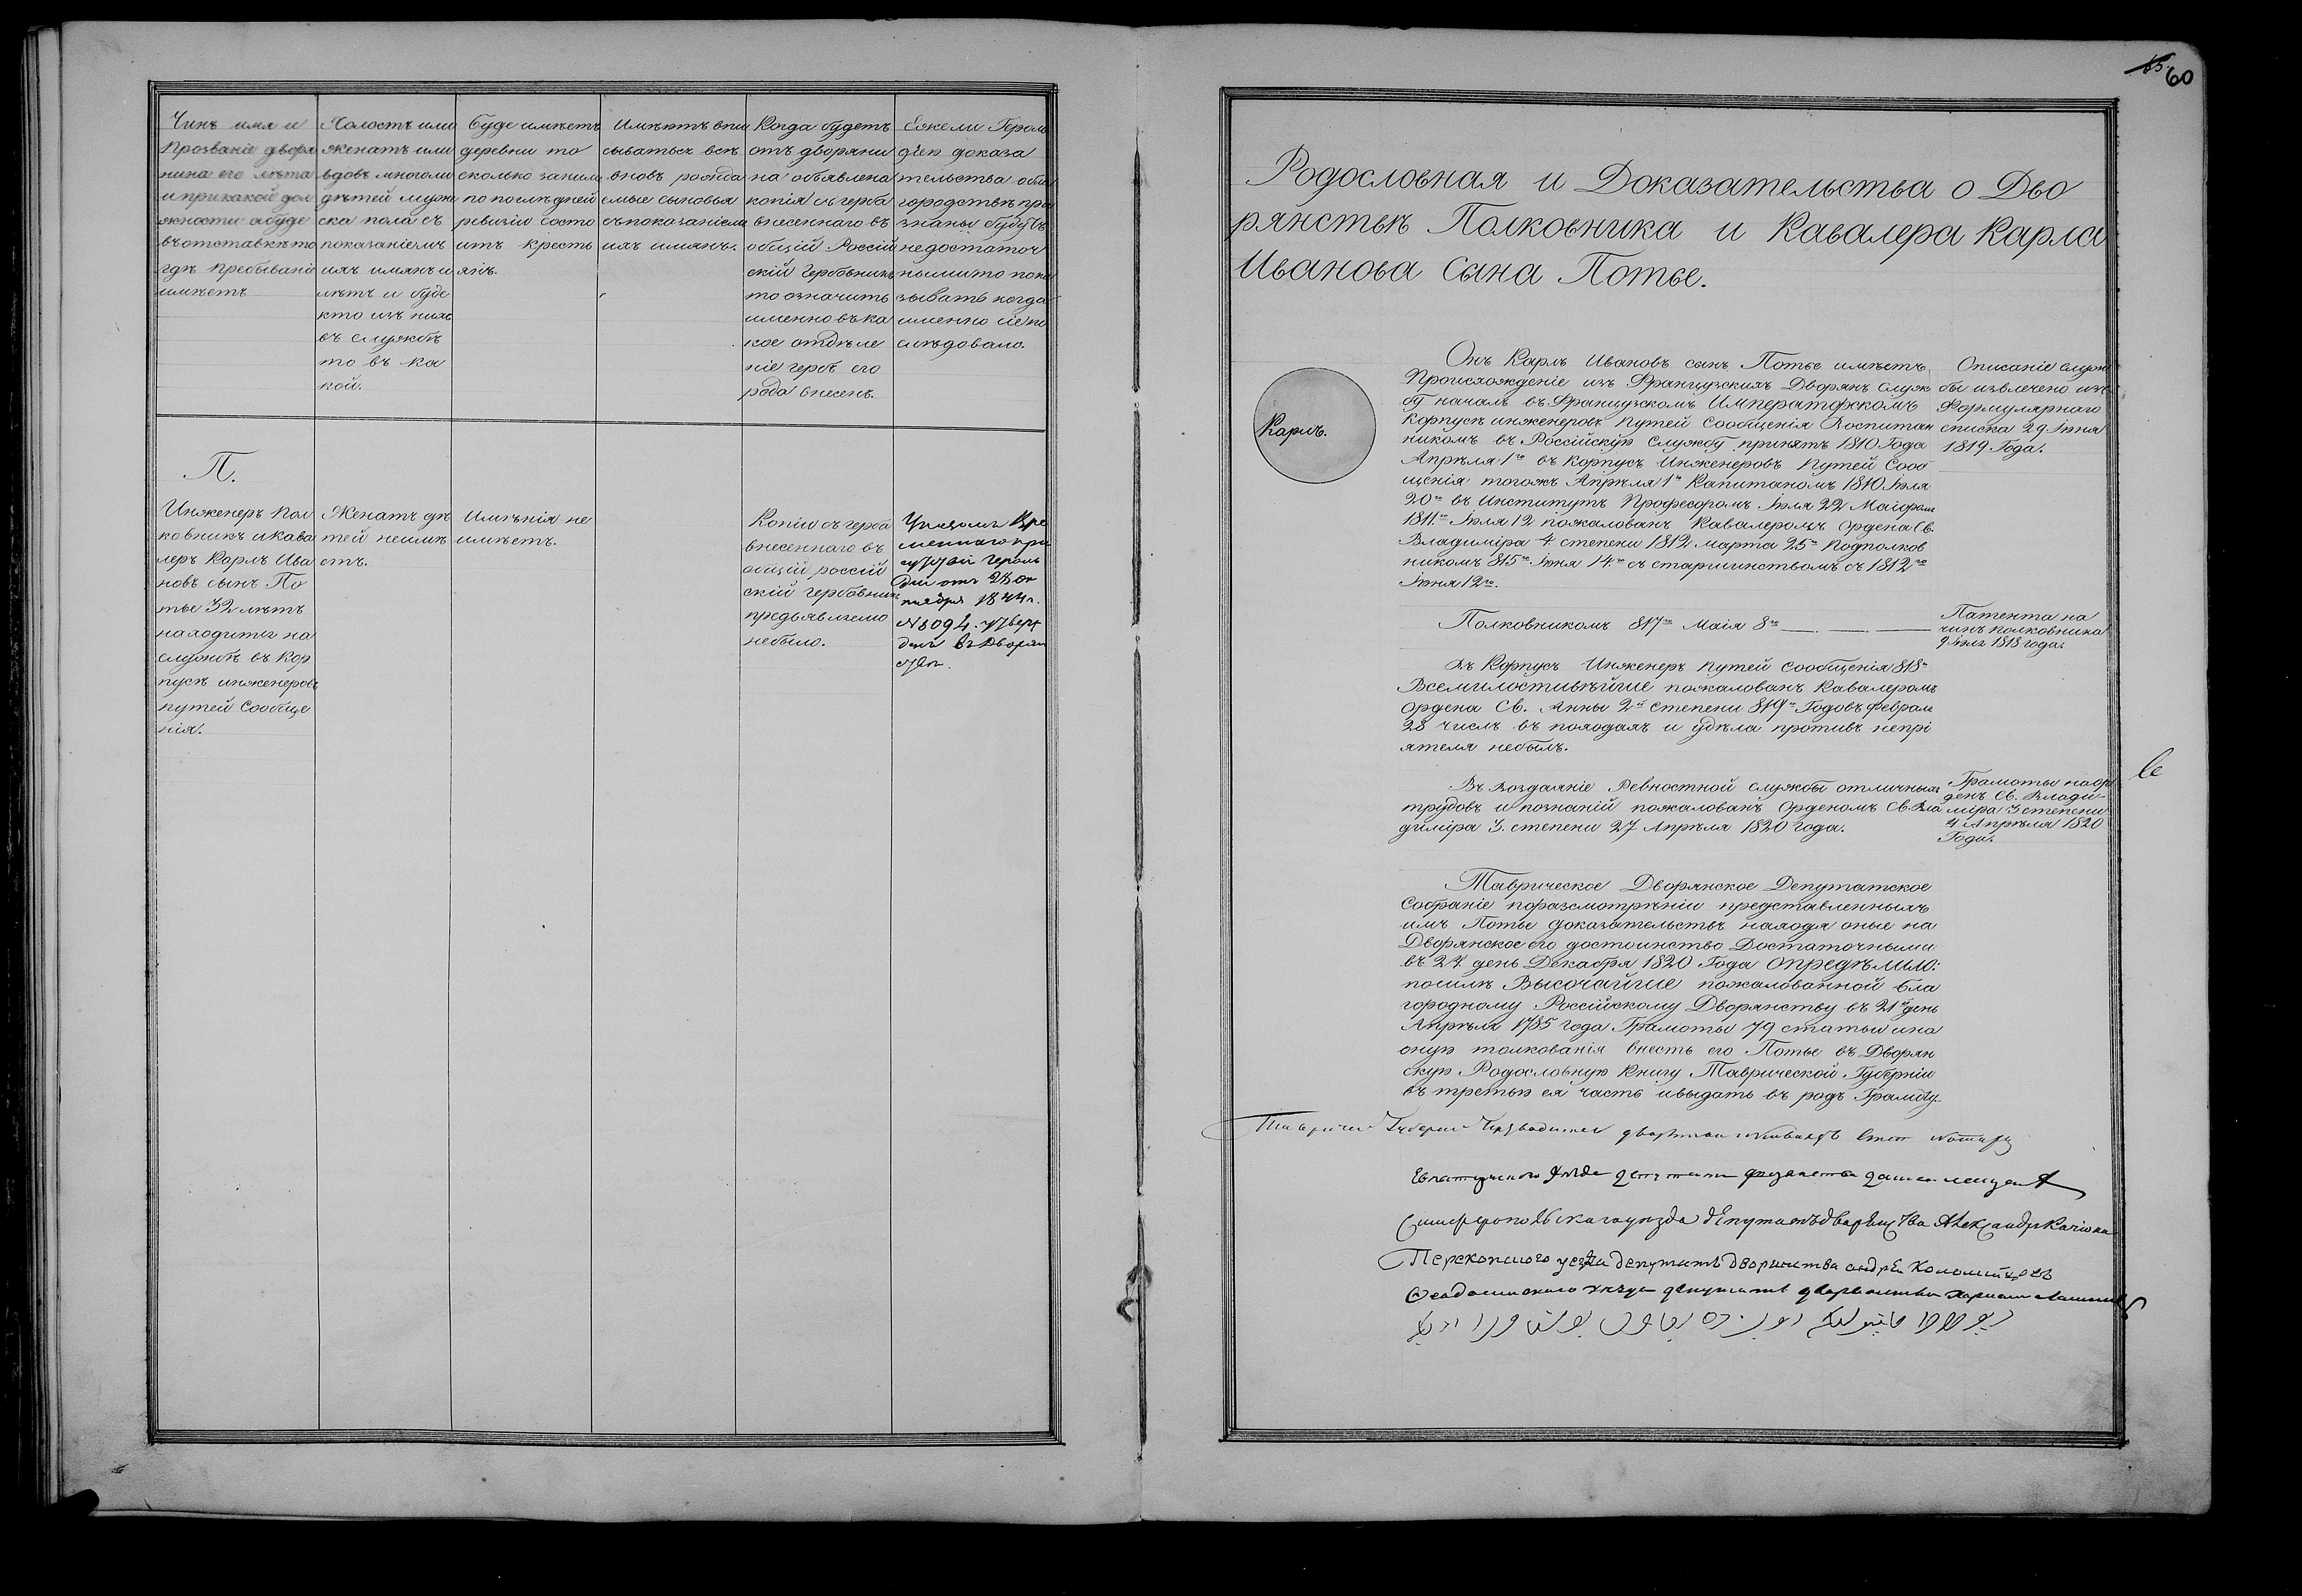 Чинъ имя и
Прозваніе дворя
нина его лѣта
и при какой дол
жности а буде
въ отставкѣ то
гдѣ пребываніе
имѣетъ
Холостъ или
женатъ или
вдовъ много ли
дѣтей муже
ска пола съ
показаніемъ
ихъ имянъ и
лѣтъ и буде
кто изъ нихъ
въ службѣ
то въ ка
кой.
Буде имѣетъ
деревни то
сколько за ним
по послѣдней
ревизіи состо
итъ кресть
янъ.
Имѣютъ впи
сываться всѣ
вновь рожда
емые сыновья
съ показаніемъ
ихъ имянъ.
Когда будетъ
отъ дворяни
на объявлена
копія съ герба
внесеннаго въ
общій Россій
скій Гербовникъ
то означить
именно въ ка
кое отдѣле
ніе гербъ его
рода внесенъ.
Ежели Герольд
діею доказа
тельства о бла
городствѣ при
знаны будутъ
недостаточ
ными то пока
зывать когда
именно сіе по
слѣдовало.
П.
Инженеръ Пол
ковникъ и Кава
леръ Карлъ Ива
новъ сынъ По
тье 32 лѣтъ
находится на
службѣ въ Кор
пусѣ инженеровъ
путей Сообще
нія.
Женатъ дѣ
тей неимѣ
етъ.
Имѣнія не
имѣетъ.
Копіи съ герба
внесеннаго въ
общій россій
скій гербовникъ
предъявлемо
небыло.
Указомъ Вре
меннаго при
сутствія Героль
діи отъ 23 ок
тября 1844 г.
№ 8094. утверж
денъ въ Дворян
ствѣ.
60
Родословная и Доказательства о Дво
рянствѣ Полковника и Кавалера Карла
Иванова Сына Потье.
Карлъ.
Онъ Карлъ Ивановъ сынъ Потье имѣетъ
Происхожденіе изъ Французскихъ Дворянъ Служ
бу началъ въ Французскомъ Императорскомъ
Корпусѣ инженеровъ Путей Сообщенія Воспитан
никомъ въ Россійскую Службу принятъ 1810 Года
Апрѣля 1го въ Корпусъ Инженеровъ Путей Сооб
щенія тогожъ Апрѣля 1го Капитаномъ 1810 Іюля
20го въ Институтъ Професоромъ Іюля 22 Маіором
1811го Іюля 12 пожалованъ Кавалеромъ Ордена Св.
Владиміра 4 степени 1812 марта 25го Подполков
никомъ 815го Іюня 14го съ старшинствомъ съ 1812го
Іюня 12го.
Описаніе служ
бы извлечено изъ
Формулярнаго
списка 29 Іюня
1819 Года.
Полковникомъ 817го Маія 8го
Патента на
чинъ полковника
9 Іюля 1818 года.
Въ Корпусъ Инженеръ Путей Сообщенія 818го
Всемилостивѣйше пожалованъ Кавалеромъ
Ордена Св. Анны 2й степени 819го Годовъ Феврал
28 числъ въ походахъ и удѣла противъ непрі
ятеля небылъ.
Въ Воздаяніе Ревностной службы отличныхъ
трудовъ и познаній пожалованъ Орденомъ Св. Вла
диміра 3. степени 27 Апрѣля 1820 года.
Грамоты на ор
денъ Св. Влади-
міра 3 степени
4 Апрѣля 1820
Года.
Таврическое Дворянское Депутатское
Собраніе поразсмотрѣніи представленныхъ
имъ Потье доказательствъ находя оные на
Дворянское его достоинство Достаточными
въ 24 день Декабря 1820 Года опредѣлило:
по силѣ Высочайше пожалованной Бла
городному Россійскому Дворянству въ 21й день
Апрѣля 1785 года Грамоты 79 статьи и на
оную толкованія внесть его Потье въ Дворян
скую Родословную Книгу Таврической Губерніи
въ третью ея часть и выдать въ родъ Грамоту
Симферопольскаго уѣзда депутатъ дворянства Александръ
Перекопскаго уезда депутатъ дворянства андрѣй
Феодосійскаго уѣзда депутатъ дворянства